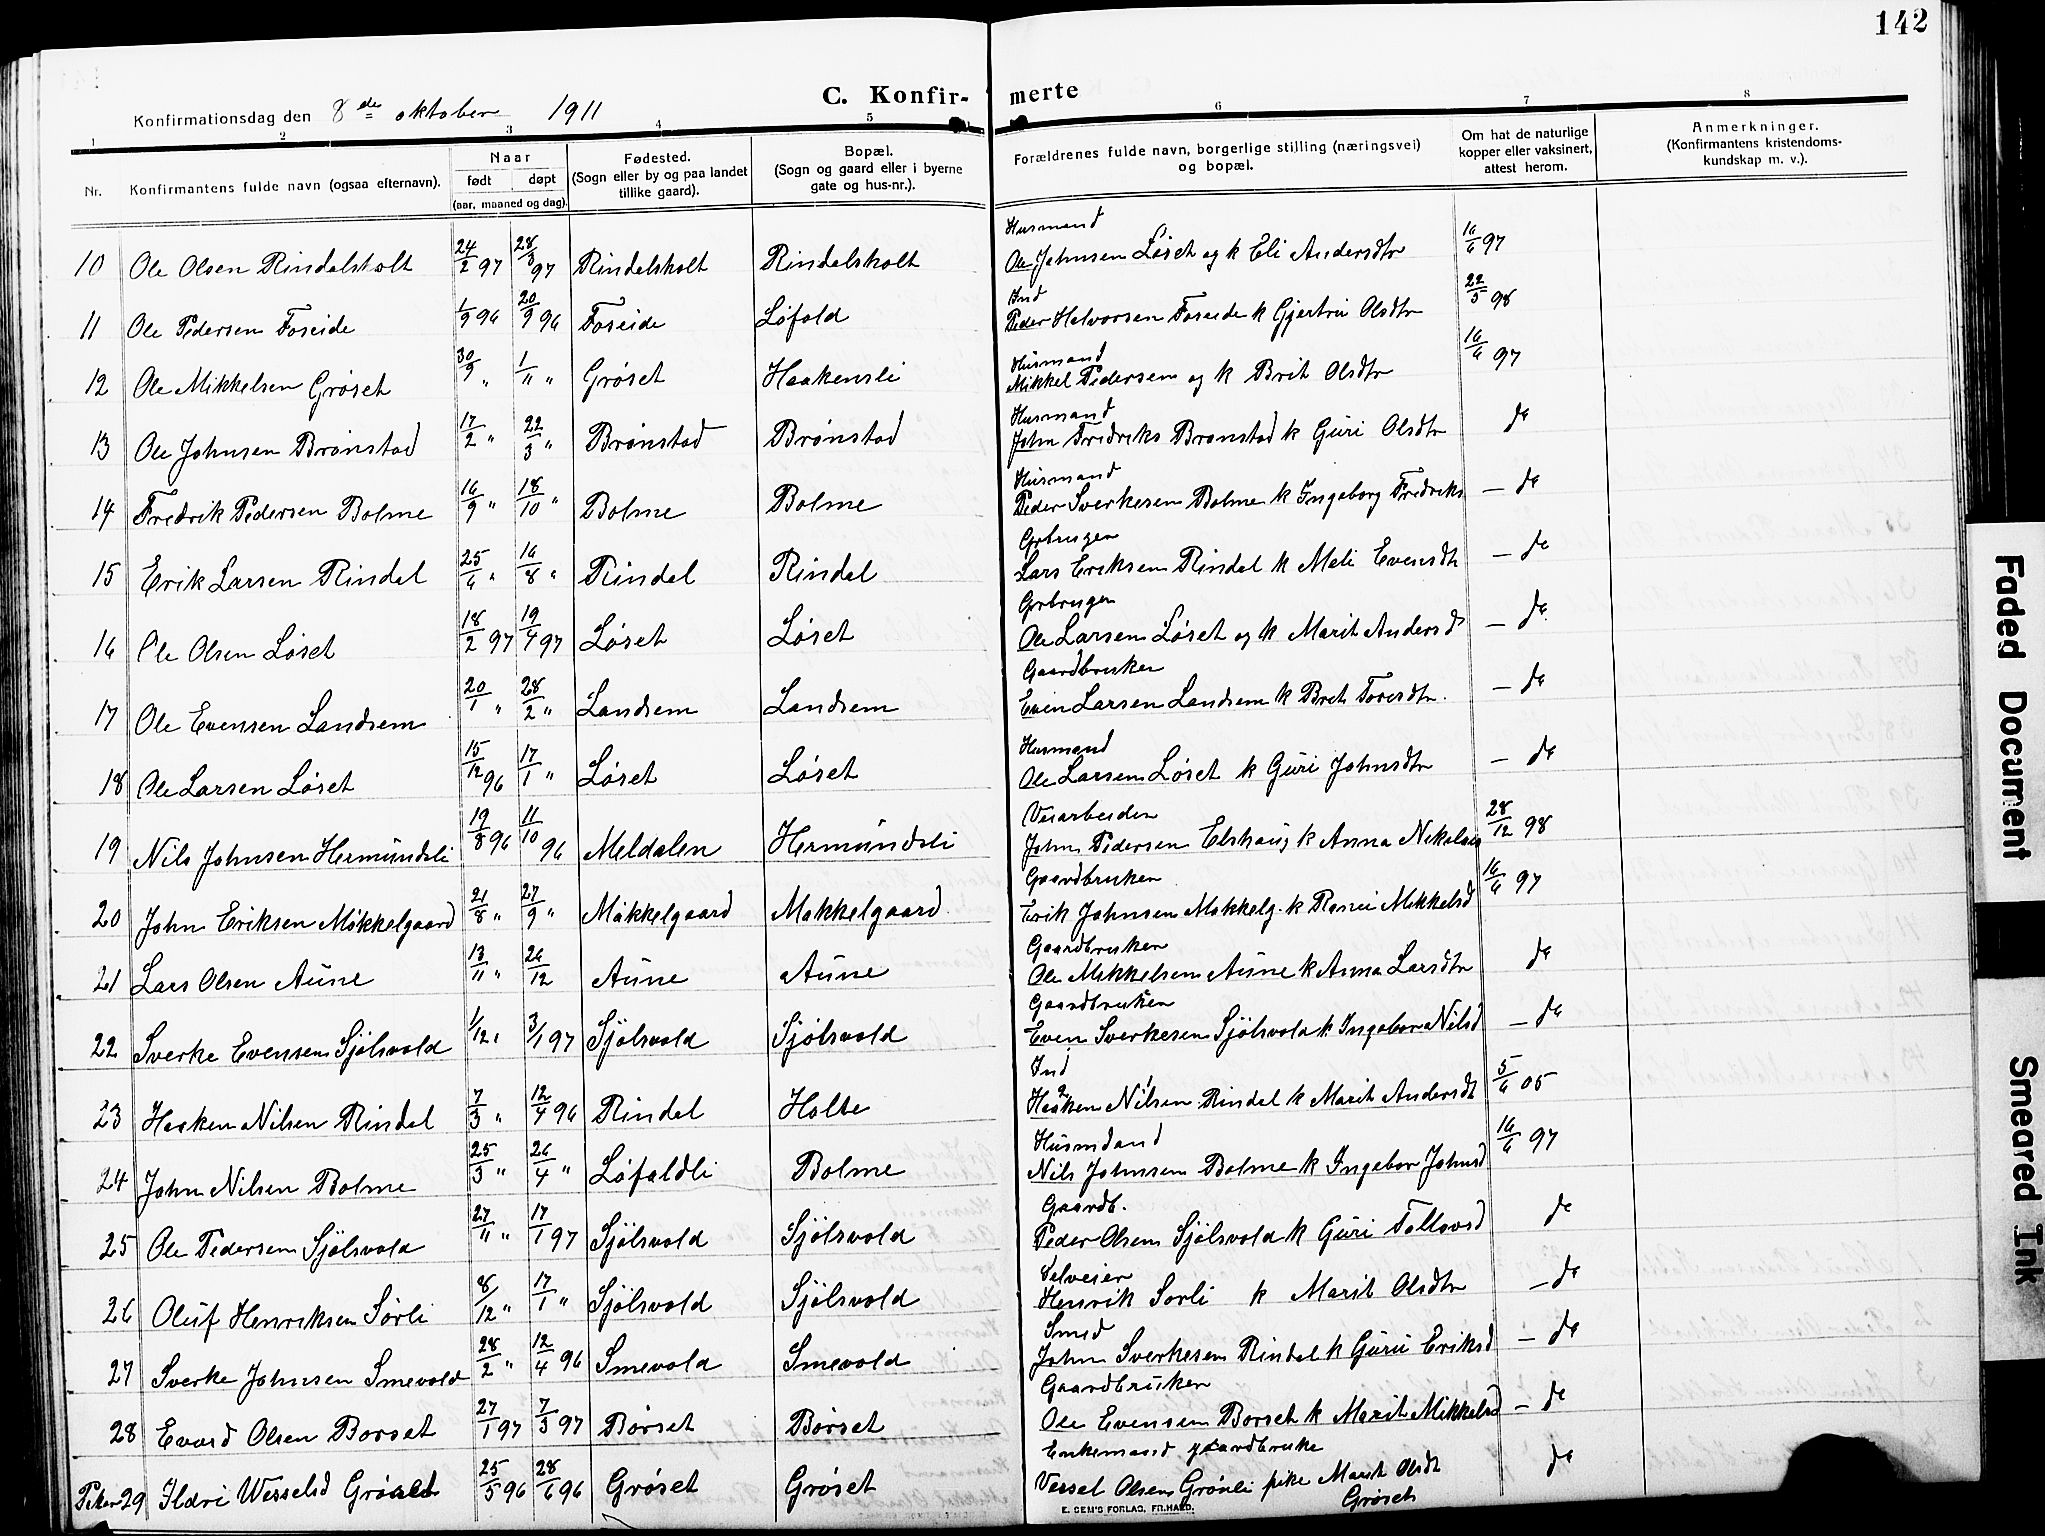 142
C. Konfir- merte
Konfirmationsdag den 8de oktober 1911
1 2 3 4 5 6 7 8
Nr. Konfirmantens fulde navn (ogsaa efternavn). Naar født døpt (aar, maaned og dag). Fødested. (Sogn eller by og paa landet tillike gaard). Bopæl. (Sogn og gaard eller i byerne gate og hus-nr.). Forældrenes fulde navn, borgerlige stilling (næringsvei) og bopæl. Om hat de naturlige kopper eller vaksinert, attest herom. Anmerkninger. (Konfirmantens kristendoms- kundskap m. v.).
Husmand
10 Ole Olsen Rindalsholt 24/2 97 28/3 97 Rindalsholt Rindalsholt Ole Johnsen Løset og k Eli Andersdtr 16/6 97
Ind
11 Ole Pedersen Foseide 1/9 96 20/9 96 Foseide Løfald Peder Halvorsen Foseide k Gjertru Olsdtr 22/5 98
Husmand
12 Ole Mikkelsen Grøset 30/9 " 1/11 " Grøset Haakensli Mikkel Pedersen og k Brit Olsdtr 16/6 97
Husmand
13 Ole Johnsen Brønstad 17/2 " 22/3 " Brønstad Brønstad John Fredriks Brønstad k Guri Olsdtr do
Husmand
14 Fredrik Pedersen Bolme 16/9 " 18/10 " Bolme Bolme Peder Sverkesen Bolme k Ingeborg Fredriks — do
Grbruger
15 Erik Larsen Rindal 25/6 " 16/8 " Rindal Rindal Lars Eriksen Rindal k Mali Evensdtr — do
Grbruger
16 Ole Olsen Løset 18/2 97 19/4 97 Løset Løset Ole Larsen Løset og k Marit Andersd — do
Gaardbruker
17 Ole Evensen Landsem 20/1 " 28/2 " Landsem Landsem Even Larsen Landsem k Brit Toresdtr. — do
Husmand
18 Ole Larsen Løset 15/12 96 17/1 " Løset Løset Ole Larsen Løset k Guri Johnsdtr — do
Veiarbeider
19 Nils Johnsen Hermundsli 19/8 96 11/10 96 Meldalen Hermundsli John Pedersen Elshaug k Anna Nikolais 28/12 98
Gaardbruker
20 John Eriksen Møkkelgaard 21/8 " 27/9 " Møkkelgaard Møkkelgaard Erik Johnsen Møkkelg. k Ranei Mikkelsd 16/6 97
Gaardbruker
21 Lars Olsen Aune 13/11 " 26/12 Aune Aune Ole Mikkelsen Aune k Anna Larsdtr do
Gaardbruker
22 Sverke Evensen Sjølsvold 1/12 " 3/1 97 Sjølsvold Sjølsvold Even Sverkesen Sjølsvold k Ingebor Nilsd — do
Ind
23 Haaken Nilsen Rindal 7/3 " 12/4 96 Rindal Holte Haaken 2 Nilsen 1 Rindal k Marit Andersdt 5/6 05
Husmdand
24 John Nilsen Bolme 25/3 " 26/4 " Løfaldli Bolme Nils Johnsen Bolme k Ingebor Johnsd 16/6 97
Gaardb.
25 Ole Pedersen Sjølsvold 27/11 " 17/1 97 Sjølsvold Sjølsvold Peder Olsen Sjølsvold k Guri Tollovsd do
Selveier
26 Oluf Henriksen Sørli 8/12 " 17/1 " Sjølsvold Sjølsvold Henrik Sørli k Marit Olsdtr — do
Smed
27 Sverke Johnsen Smevold 28/2 " 12/4 96 Smevold Smevold John Sverkesen Rindal k Guru Eriksd — do
Gaardbruker
28 Evard Olsen Børset 27/1 97 7/3 97 Børset Børset Ole Evensen Børset k Marit Mikkelsd — do
Enkemand gaardbruke
Piker 29 Ildri Wesselsd Grøset 25/5 96 28/6 96 Grøset Grøset Vessel Olsen Grønli pike Marit Olsdt do
Grøset
E. SEM'S FORLAG, FR.HALD.
Faded Document
Smeared Ink